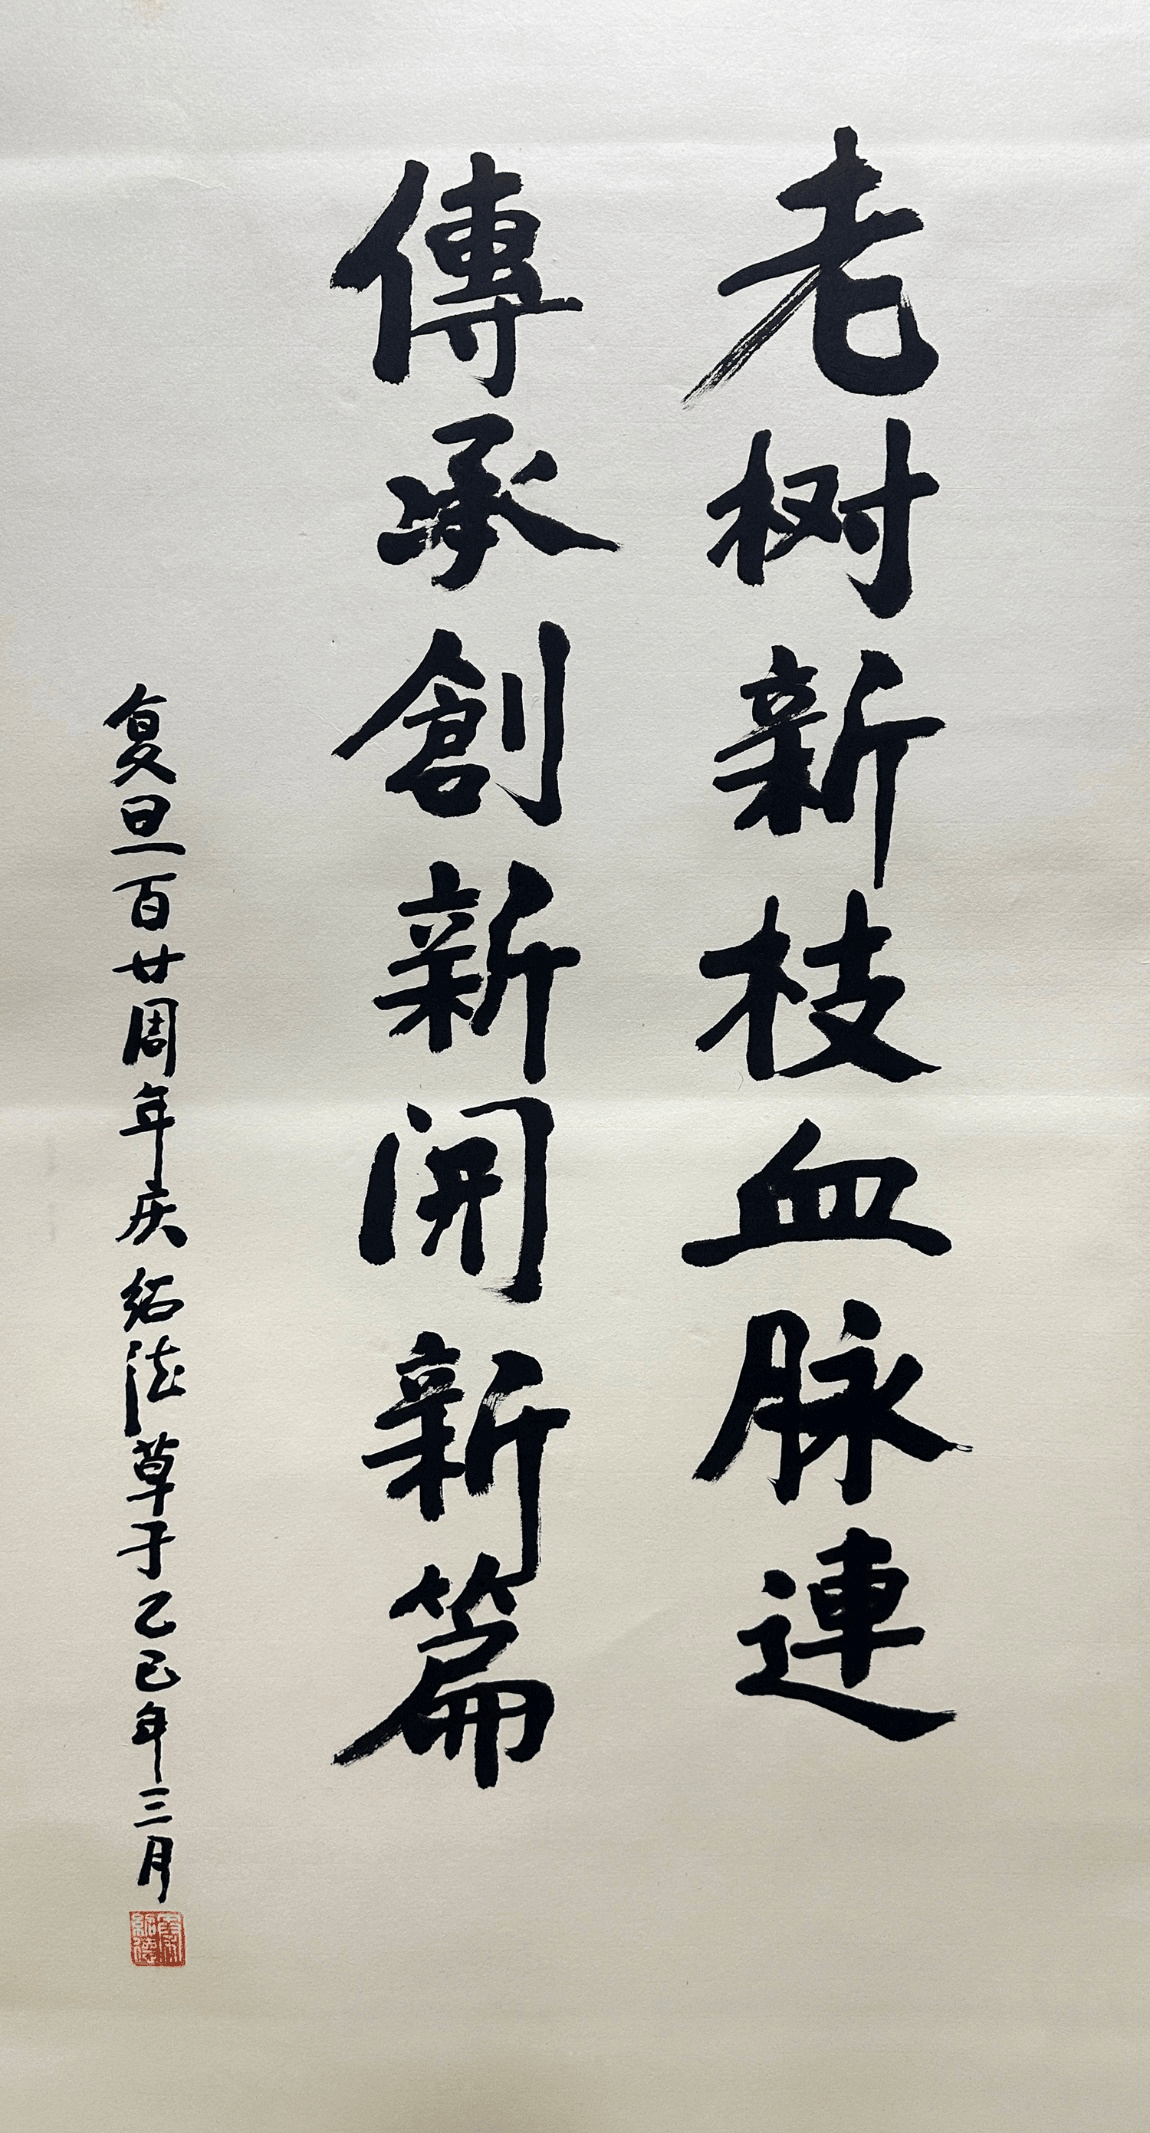 老树新枝血脉連
傳承創新開新篇
复旦百廿周年庆 绍德草于乙巳年三月